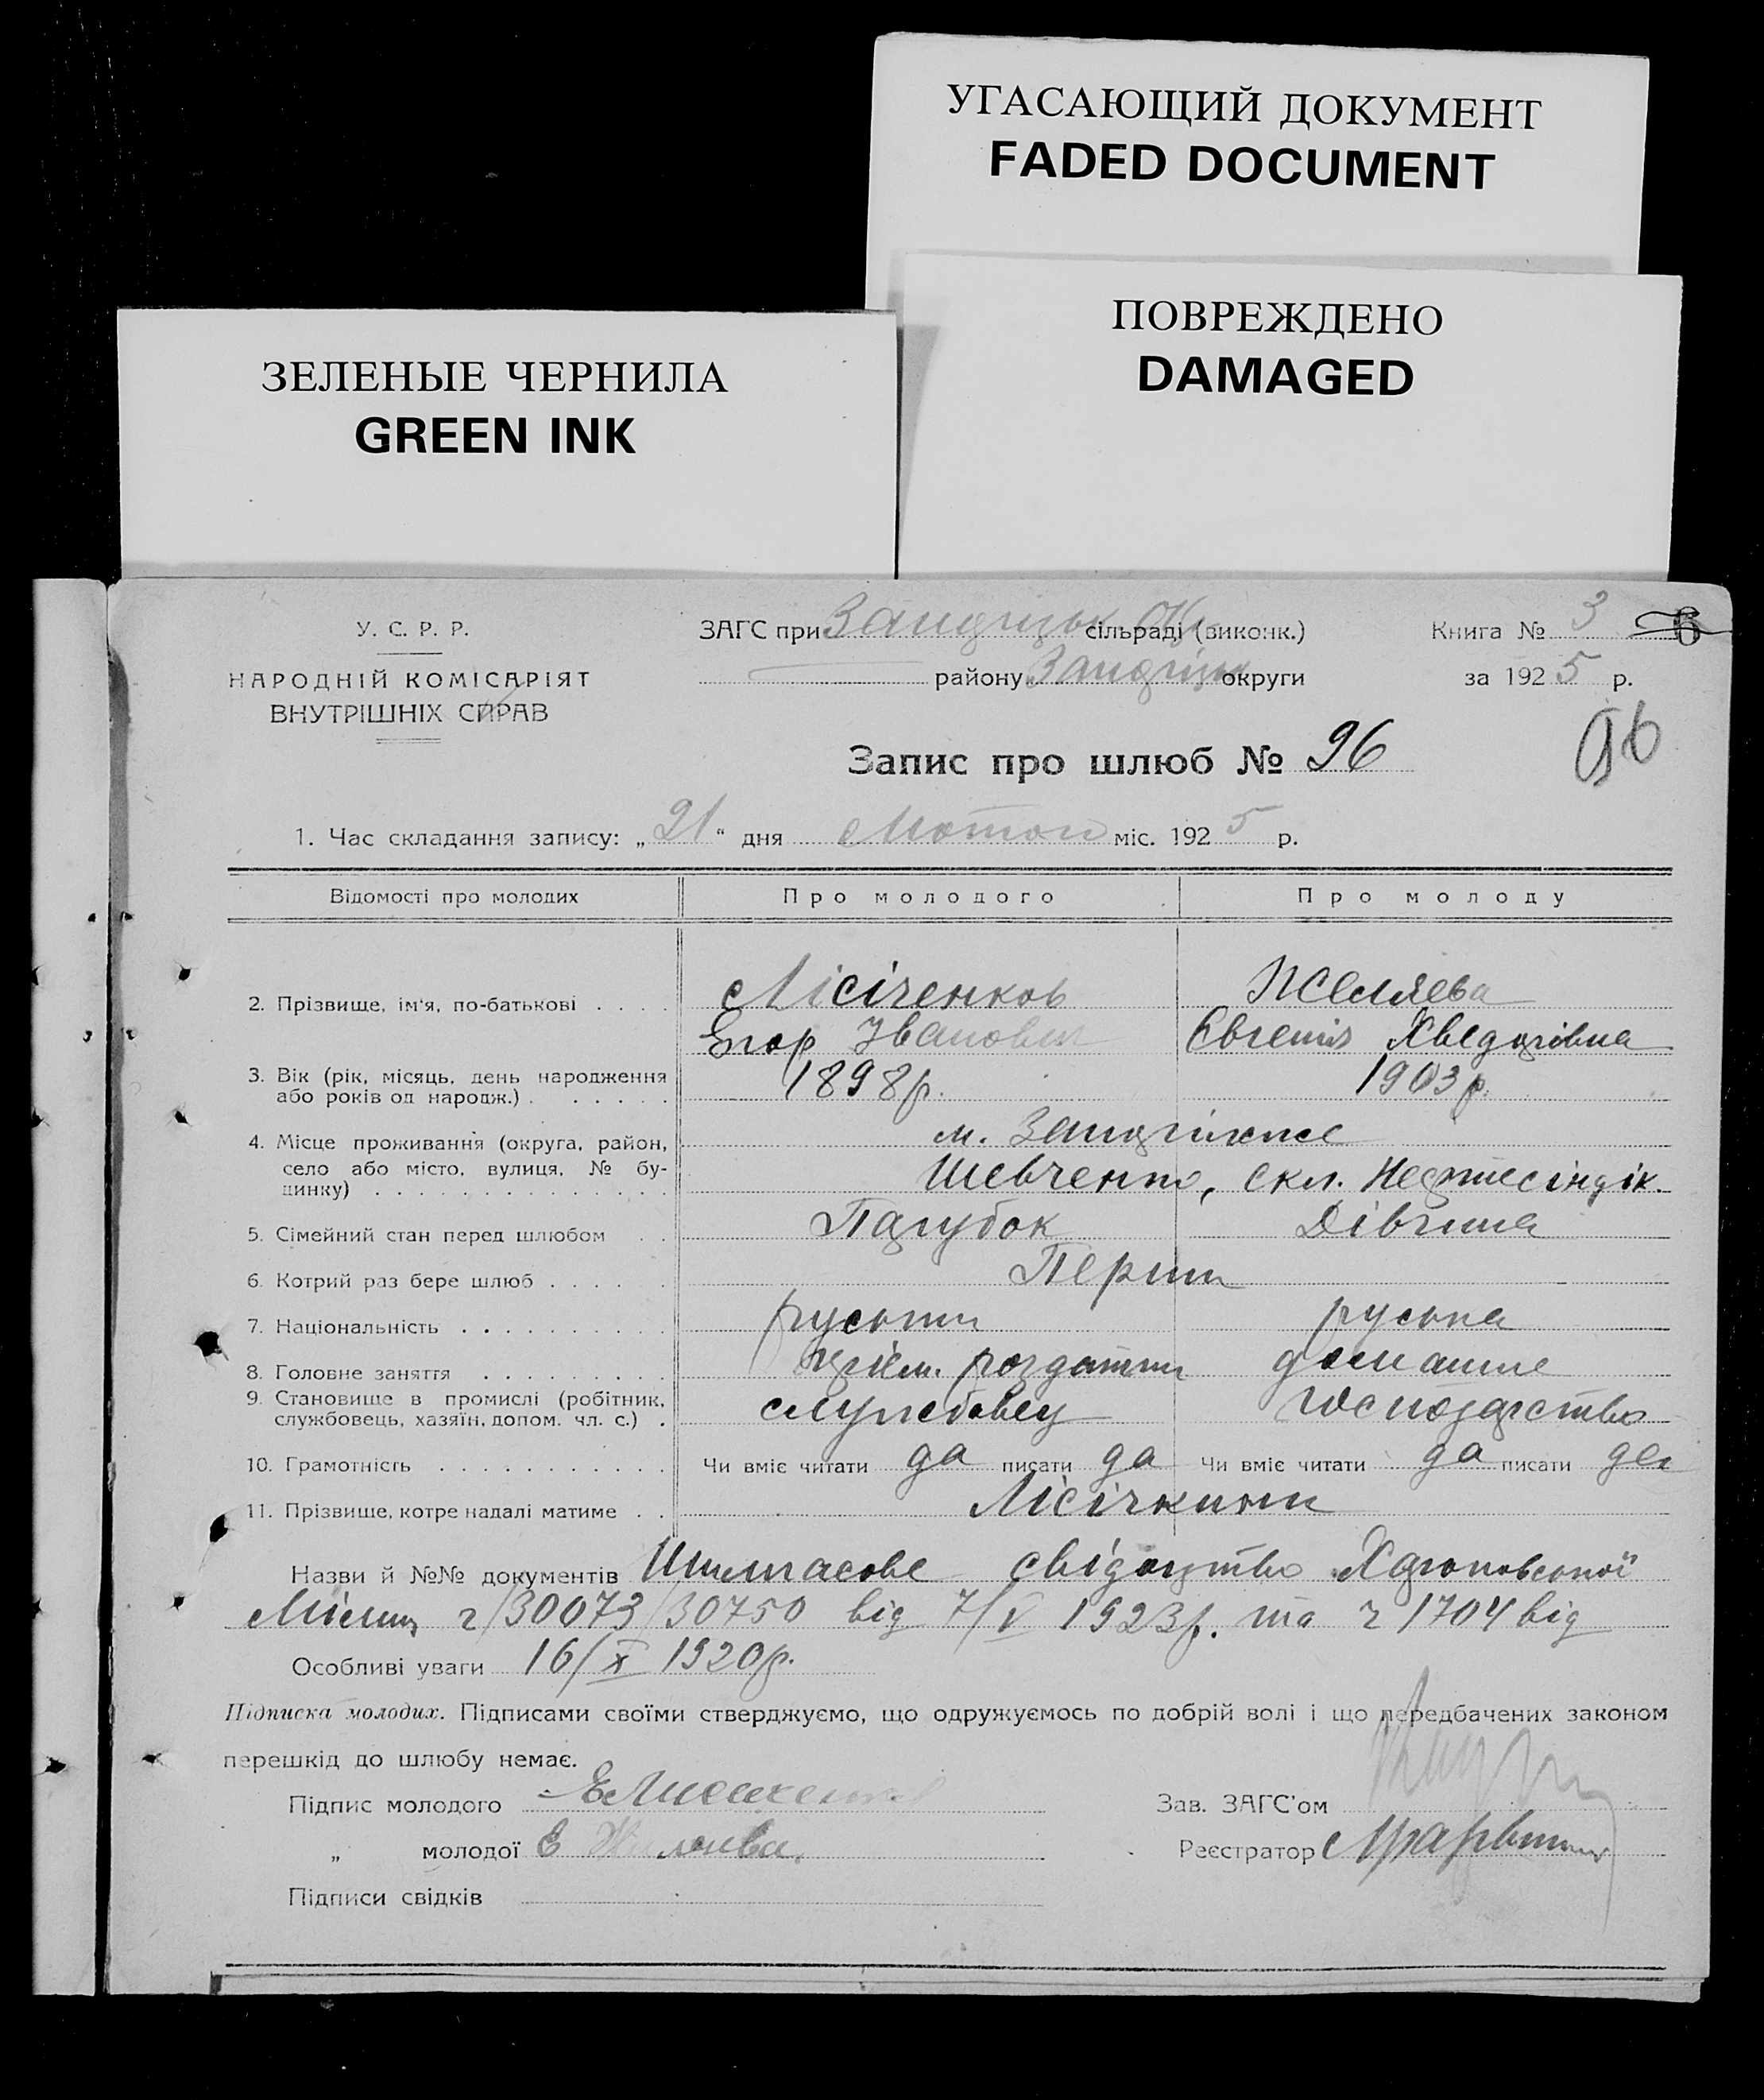 УГАСАЮЩИЙ ДОКУМЕНТ
FADED DOCUMENT
ПОВРЕЖДЕНО
DAMAGED
ЗЕЛЕНЫЕ ЧЕРНИЛА
GREEN INK
У. С. Р. Р.
НАРОДНІЙ КОМІСАРІЯТ
ВНУТРІШНІХ СПРАВ
ЗАГС при сільраді (виконк.)
району округи
Книга № 3 6
за 1925 р.
Запис про шлюб № 96
96
1. Час складання запису: „21“ дня Лютого міс. 1925 р.
Відомості про молодих Про молодого Про молоду
2. Прізвище, ім'я, по-батькові . . . . Лісіченков
Єгор Іванович Євгенія Хведорівна
3. Вік (рік, місяць, день народження
або років од народж.) . . . . . . 1898р. 1903р.
4. Місце проживання (округа, район,
село або місто, вулиця, № бу-
динку) . . . . . . . . . . . . . .
м. Запоріжжє
Шевченко, скл. Нефтесіндік.
5. Сімейний стан перед шлюбом . . Парубок Дівчина
6. Котрий раз бере шлюб . . . . . Перший
7. Національність . . . . . . . . . . руський руська
8. Головне заняття . . . . . . . . . домашнє
9. Становище в промислі (робітник,
службовець, хазяїн, допом. чл. с.) . службовец господарство
10. Грамотність . . . . . . . . . . . . Чи вміє читати да писати да Чи вміє читати да писати да
11. Прізвище, котре надалі матиме . .
Назви й №№ документів свідоцтво
30073/30750 від 7/V 1923р. та ч 1704 від
Особливі уваги 16/X 1920р.
Підписка молодих. Підписами своїми стверджуємо, що одружуємось по добрій волі і що передбачених законом
перешкід до шлюбу немає.
Підпис молодого
„ молодої Е
Підписи свідків
Зав. ЗАГС'ом
Реєстратор